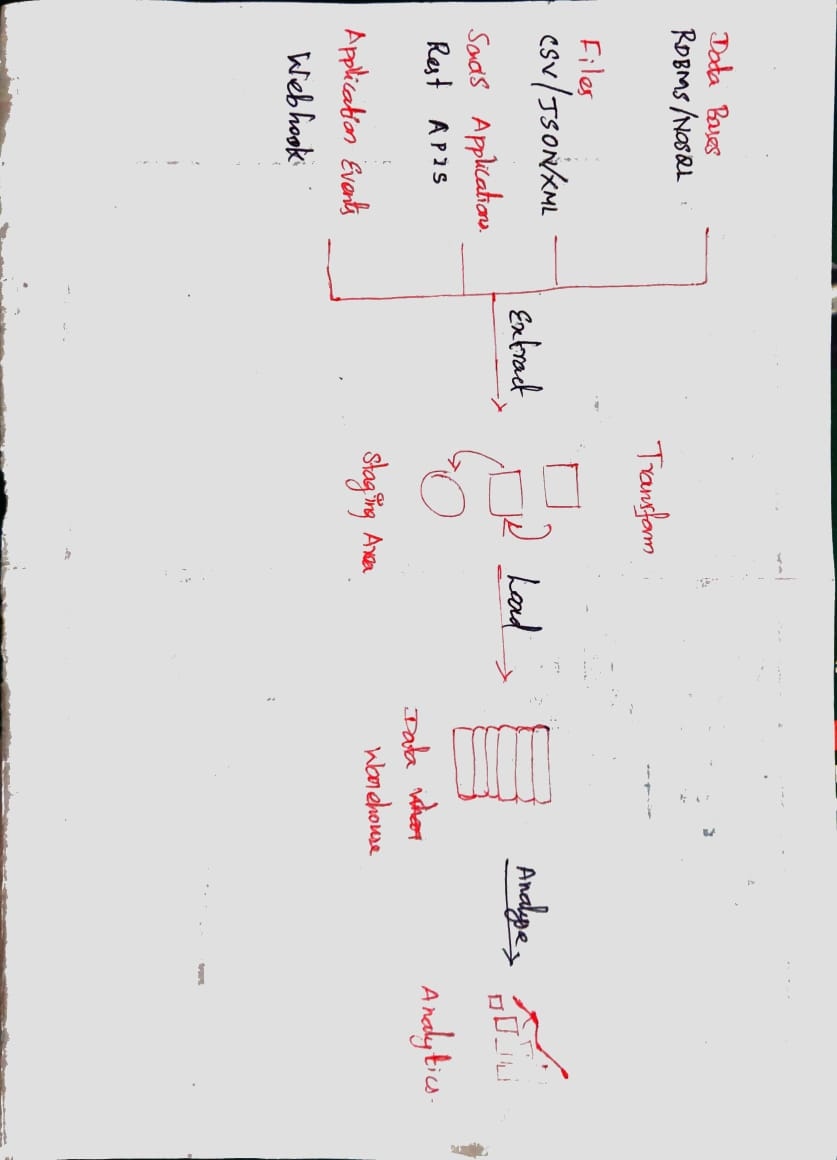 Data Bases
RDBMS/NOSQL
Files
CSV/JSON/XML
SaaS Applications.
Rest APIS
Application Events
Webhook
Extract
Transform
Staging Area
Load
Data
Warehouse
Analyze
Analytics.